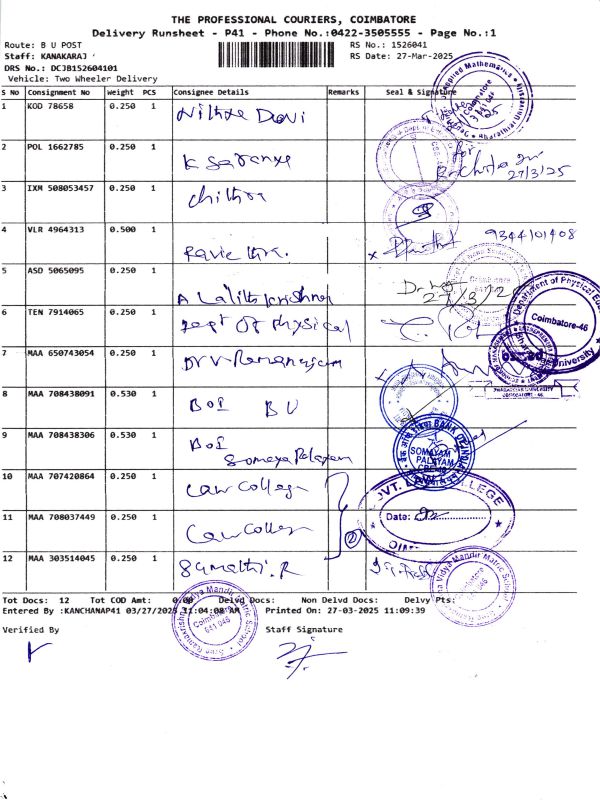 THE PROFESSIONAL COURIERS, COIMBATORE
Delivery Runsheet - P41 - Phone No.:0422-3505555 - Page No.:1
Route: B U POST
RS No.: 1526041
Staff: KANAKARAJ
RS Date: 27-Mar-2025
DRS No.: DCJB152604101
Vehicle: Two Wheeler Delivery
S No Consignment No Weight PCS Consignee Details Remarks Seal & Signature
1 KOD 78658 0.250 1 Nithya Devi
2 POL 1662785 0.250 1 K Saranya
for
27/3/25
3 IXM 508053457 0.250 1 Chithra
4 VLR 4964313 0.500 1
9344101408
5 ASD 5065095 0.250 1 A Lalitha krishnan
27/3/25
6 TEN 7914065 0.250 1 Dept Of Physical
Department of Physical
Coimbatore-46
University
7 MAA 650743054 0.250 1 Dr V. Ramanujam
BHARATHIAR UNIVERSITY
COIMBATORE - 46
8 MAA 708438091 0.530 1 BOI B U
9 MAA 708438306 0.530 1 BOI
Somaya Palayam
SOMAYAM
PALAYAM
10 MAA 707420864 0.250 1 Law College
GOVT. LAW COLLEGE
11 MAA 708037449 0.250 1 Law College
Date:
12 MAA 303514045 0.250 1 Sumathi. R
Tot Docs: 12 Tot COD Amt: 0.00 Delvd Docs: Non Delvd Docs: Delvy Pts:
Entered By :KANCHANAP41 03/27/2025 11:04:08 AM Printed On: 27-03-2025 11:09:39
Verified By
Staff Signature
Coimbatore
641 046